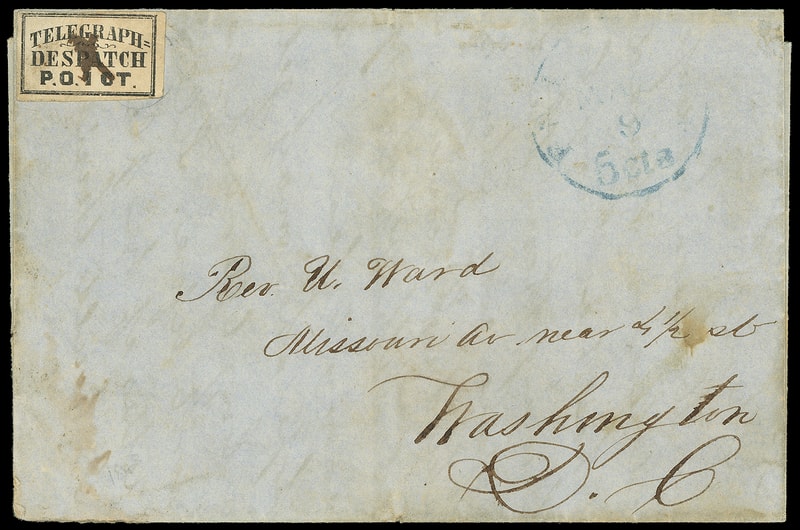 TELEGRAPH=
DESPATCH
P.O. 1 CT.
9
5 cts
Rev. U. Ward
Missouri Av near 4½ st
Washington
D. C